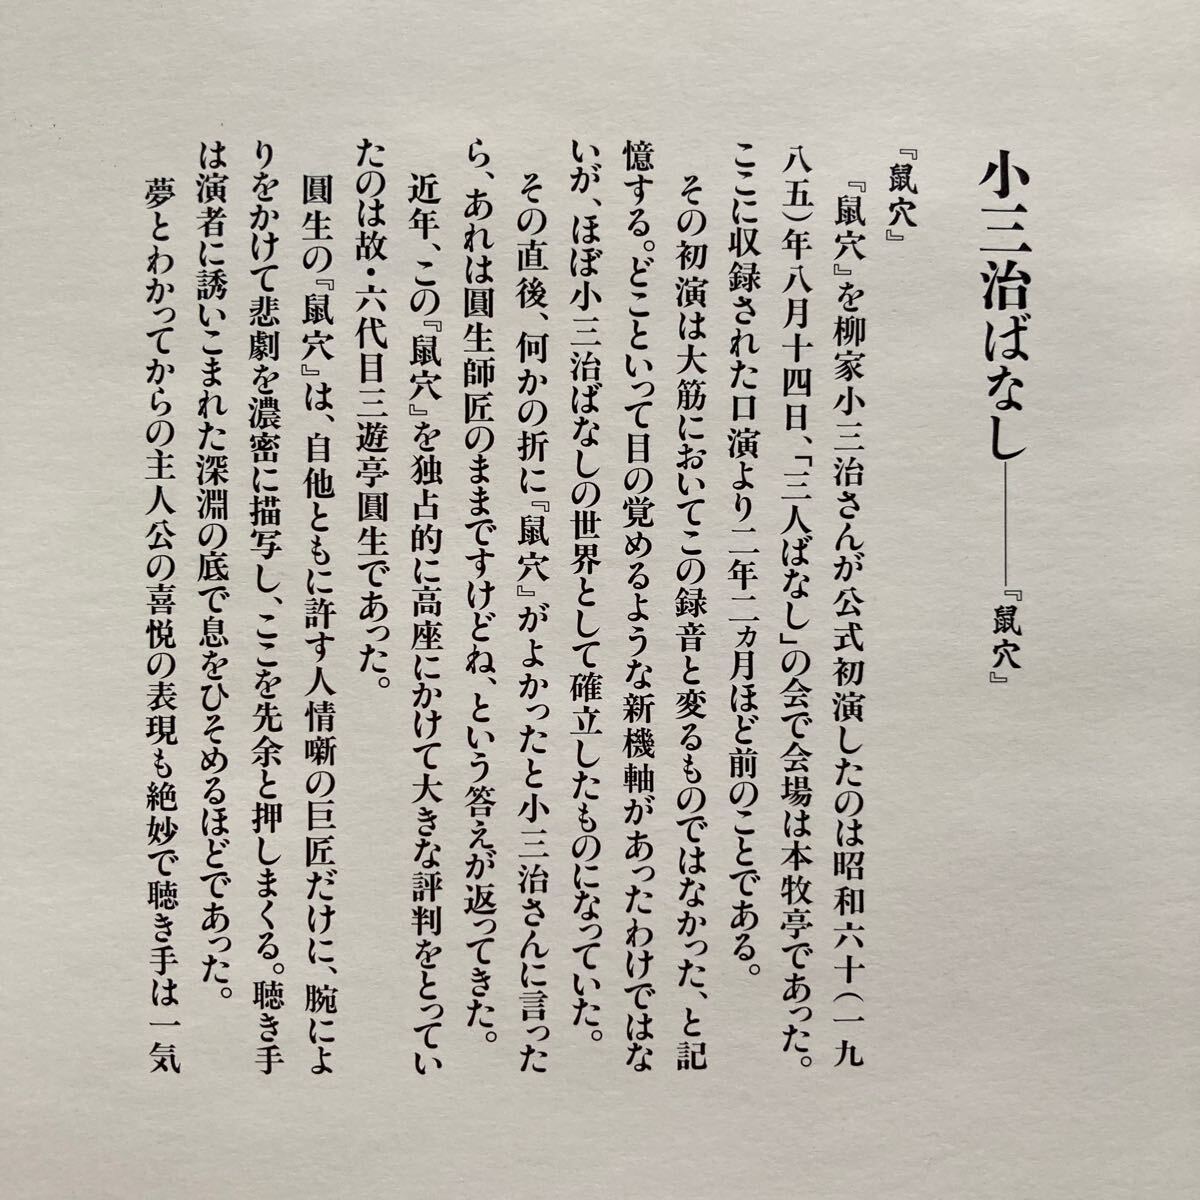 小三治ばなし――『鼠穴』
『鼠穴』
『鼠穴』を柳家小三治さんが公式初演したのは昭和六十（一九
八五）年八月十四日、「三人ばなし」の会で会場は本牧亭であった。
ここに収録された口演より二年二ヵ月ほど前のことである。
その初演は大筋においてこの録音と変るものではなかった、と記
憶する。どこといって目の覚めるような新機軸があったわけではな
いが、ほぼ小三治ばなしの世界として確立したものになっていた。
その直後、何かの折に『鼠穴』がよかったと小三治さんに言った
ら、あれは圓生師匠のままですけどね、という答えが返ってきた。
近年、この『鼠穴』を独占的に高座にかけて大きな評判をとってい
たのは故・六代目三遊亭圓生であった。
圓生の『鼠穴』は、自他ともに許す人情噺の巨匠だけに、腕によ
りをかけて悲劇を濃密に描写し、ここを先余と押しまくる。聴き手
は演者に誘いこまれた深淵の底で息をひそめるほどであった。
夢とわかってからの主人公の喜悦の表現も絶妙で聴き手は一気